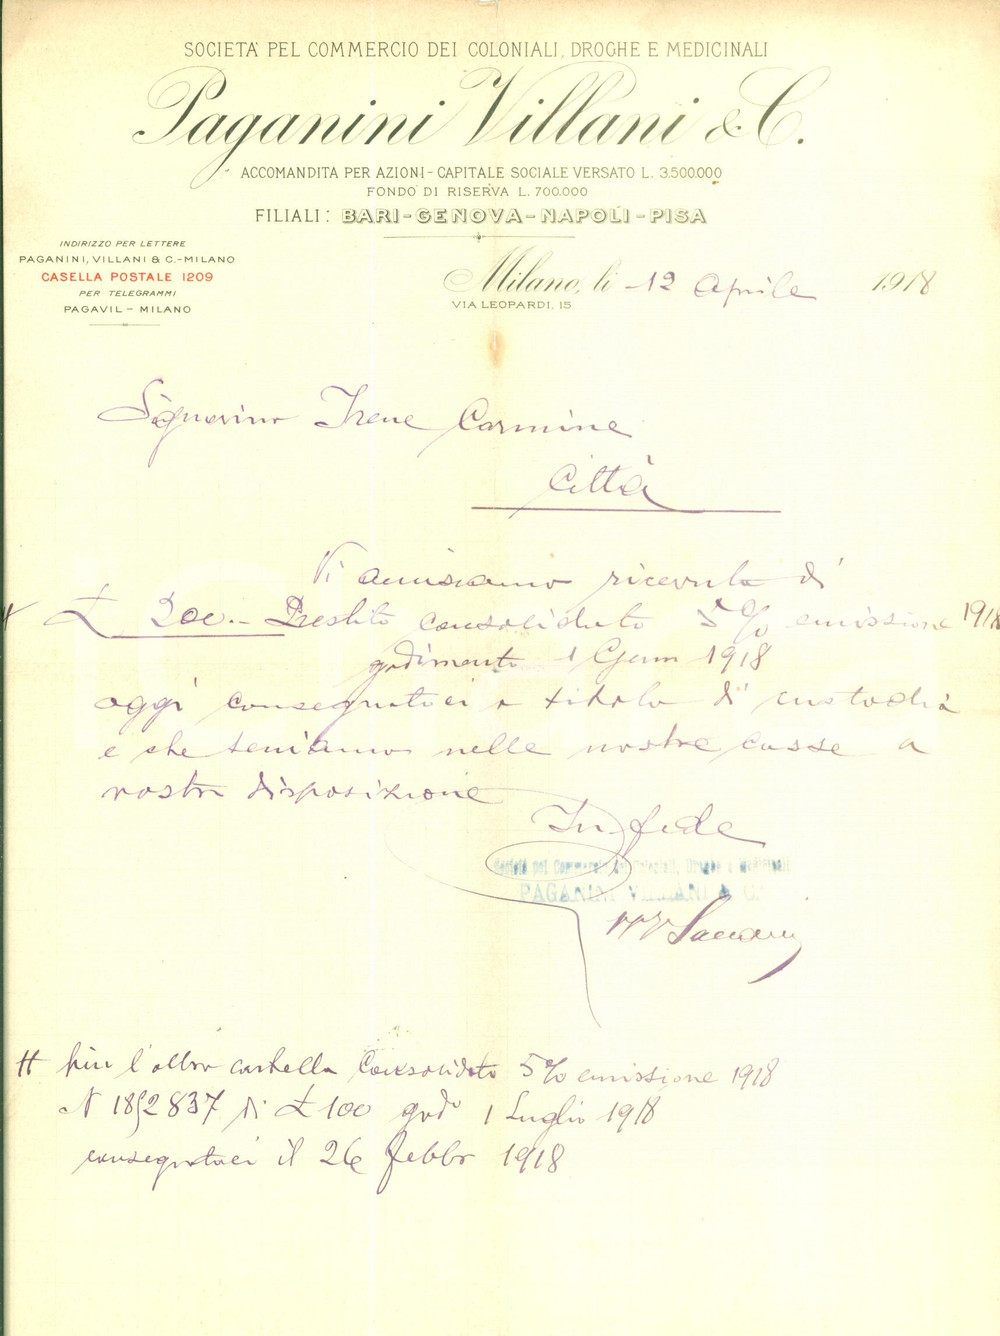 SOCIETÀ PEL COMMERCIO DEI COLONIALI, DROGHE E MEDICINALI
Paganini Villani & C.
ACCOMANDITA PER AZIONI - CAPITALE SOCIALE VERSATO L. 3.500.000
FONDO DI RISERVA L. 700.000
FILIALI: BARI - GENOVA - NAPOLI - PISA
INDIRIZZO PER LETTERE
PAGANINI, VILLANI & C. - MILANO
CASELLA POSTALE 1209
PER TELEGRAMMI
PAGAVIL - MILANO
Milano, li 12 Aprile 1918
VIA LEOPARDI, 15
Signorina Irene Carmine
Città
Vi accusiamo ricevuta di
# £ 200.- Prestito consolidato 5% emissione 1918
godimento 1 Genn 1918
oggi consegnatoci a titolo di custodia
e che teniamo nelle nostre casse a
vostra disposizione
In fede
Società pel Commercio dei Coloniali, Droghe e Medicinali
PAGANINI VILLANI & C.
# più l'altra cartella Consolidato 5% emissione 1918
N 182837 di £ 100 god° 1 Luglio 1918
consegnataci il 26 febbr 1918